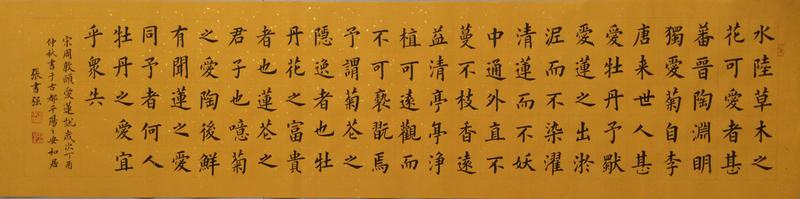 水陸草木之
花可愛者甚
蕃晉陶淵明
獨愛菊自李
唐来世人甚
愛牡丹予
愛蓮之出淤
泥而不染濯
清蓮而不妖
中通外直不
蔓不枝香遠
益清亭亭淨
植可遠觀而
不可褻翫焉
予謂菊花之
隱逸者也牡
丹花之富貴
者也蓮花之
君子也噫菊
之愛陶後鮮
有聞蓮之愛
同予者何人
牡丹之愛宜
乎衆矣
宋周敦頤愛蓮說歲次丁酉
仲秋書于古都平陽之安和居
張書强